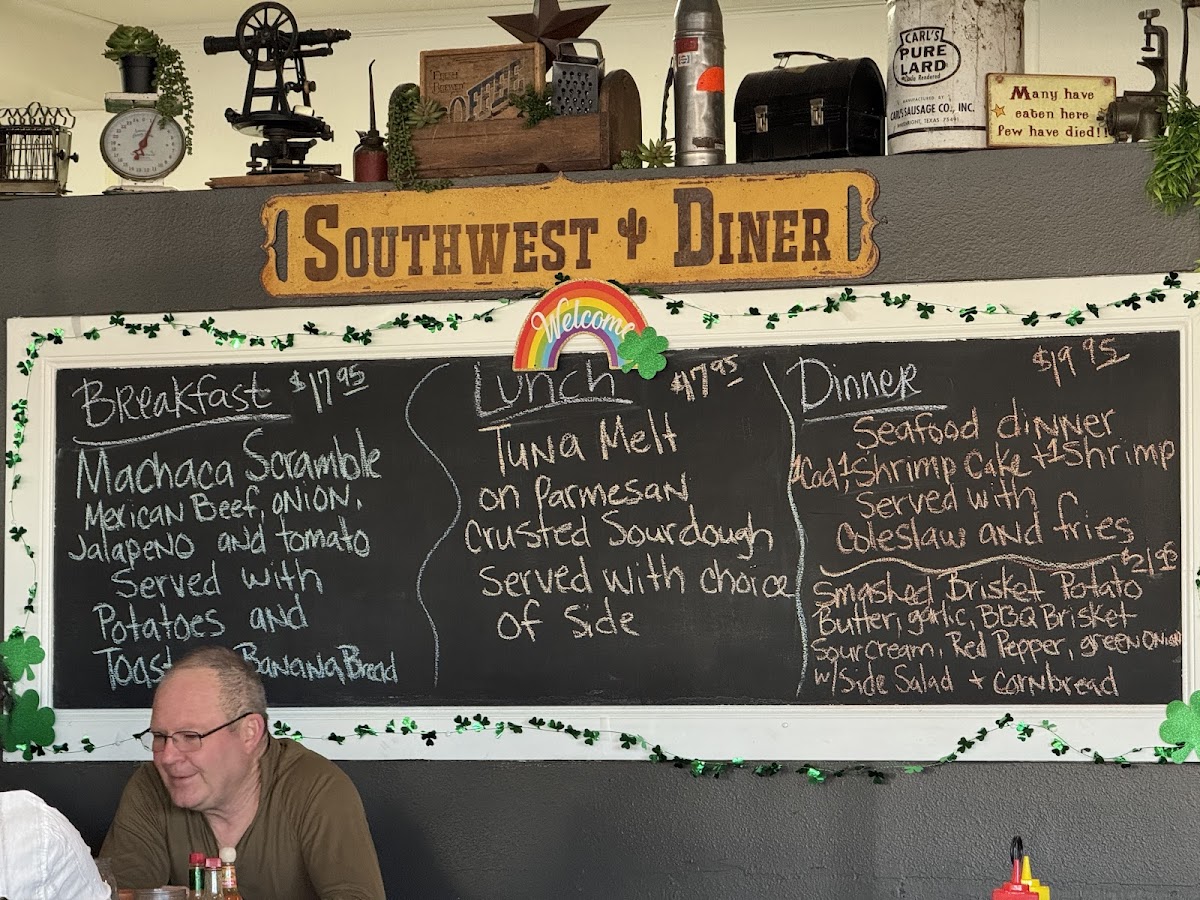 FRESH
COFFEE
CARL'S
PURE
LARD
Rendered
MANUFACTURED BY
CARL'S SAUSAGE CO., INC.
TEXAS 75491
Many have
eaten here
few have died!!
SOUTHWEST DINER
Welcome
Breakfast $17.95
Machaca Scramble
Mexican Beef, onion,
Jalapeno and tomato
Served with
Potatoes and
Toast
Banana Bread
Lunch $17.95
Tuna Melt
on Parmesan
Crusted Sourdough
Served with choice
of Side
Dinner $19.95
Seafood dinner
1Cod, 1Shrimp Cake + 1Shrimp
Served with
Coleslaw and fries
$21.95
Smashed Brisket Potato
Butter, garlic, BBQ Brisket
Sour cream, Red Pepper, green onion
w/Side Salad + Cornbread